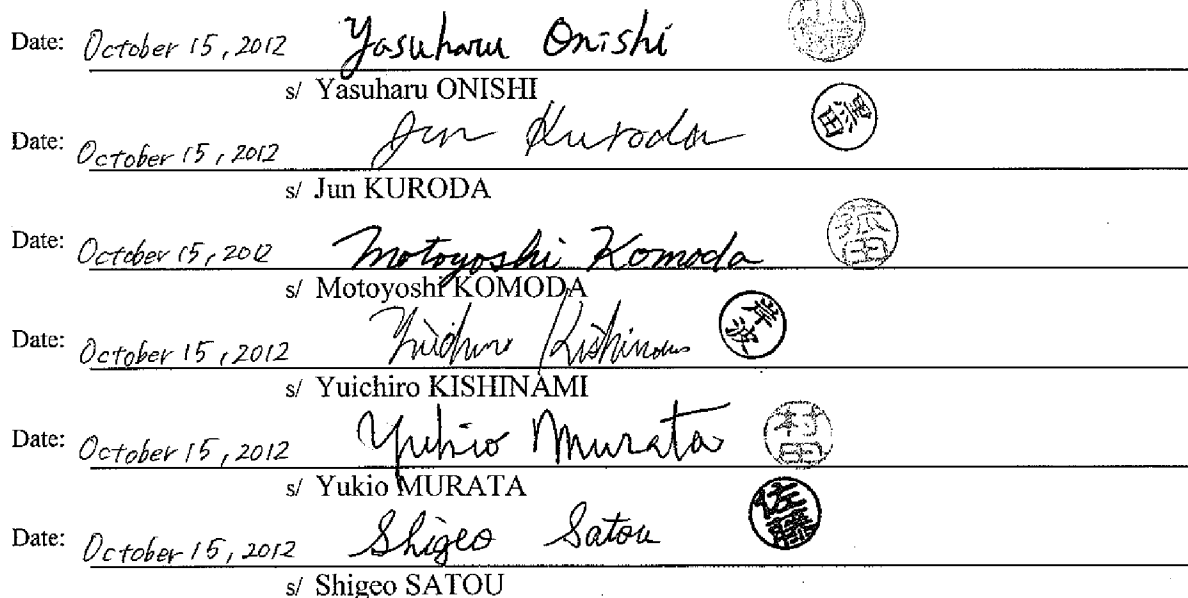 Date: October 15, 2012 Yasuharu Onishi
s/ Yasuharu ONISHI
Date: October 15, 2012 Jun Kuroda 黒田
s/ Jun KURODA
Date: October 15, 2012 Motoyoshi Komoda 菰田
s/ Motoyoshi KOMODA
Date: October 15, 2012 Yuichiro Kishinami 岸波
s/ Yuichiro KISHINAMI
Date: October 15, 2012 Yukio Murata 村田
s/ Yukio MURATA
Date: October 15, 2012 Shigeo Satou 佐藤
s/ Shigeo SATOU